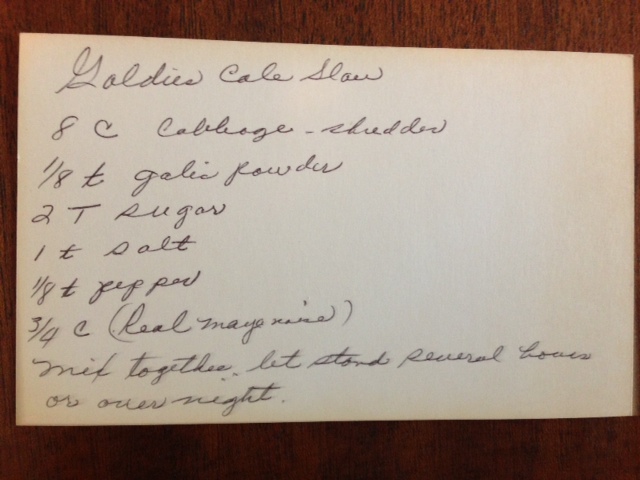 Goldies Cole Slaw
8 C Cabbage - shredded
1/8 t galic powder
2 T sugar
1 t salt
1/8 t pepper
3/4 C (Real mayonaise)
Mix together. let stand several hours
or over night.